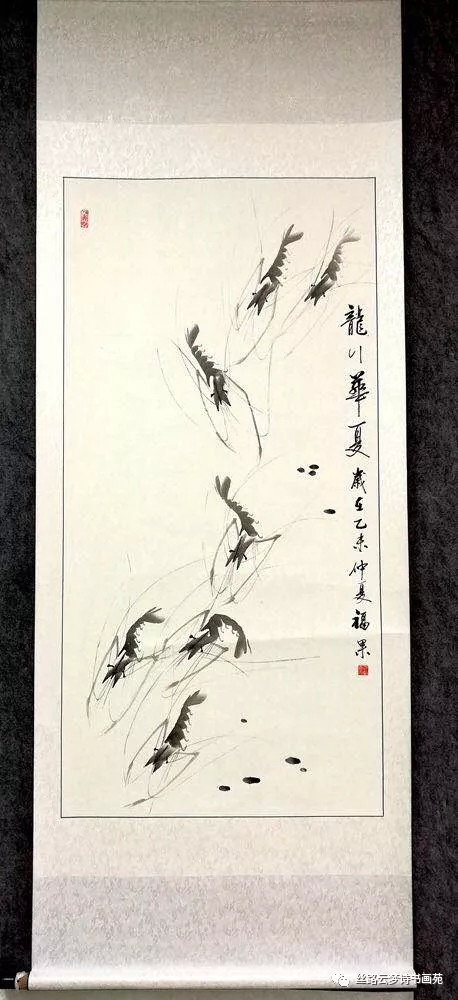 龍行華夏 歲在乙未仲夏 福果
丝路云梦诗书画苑